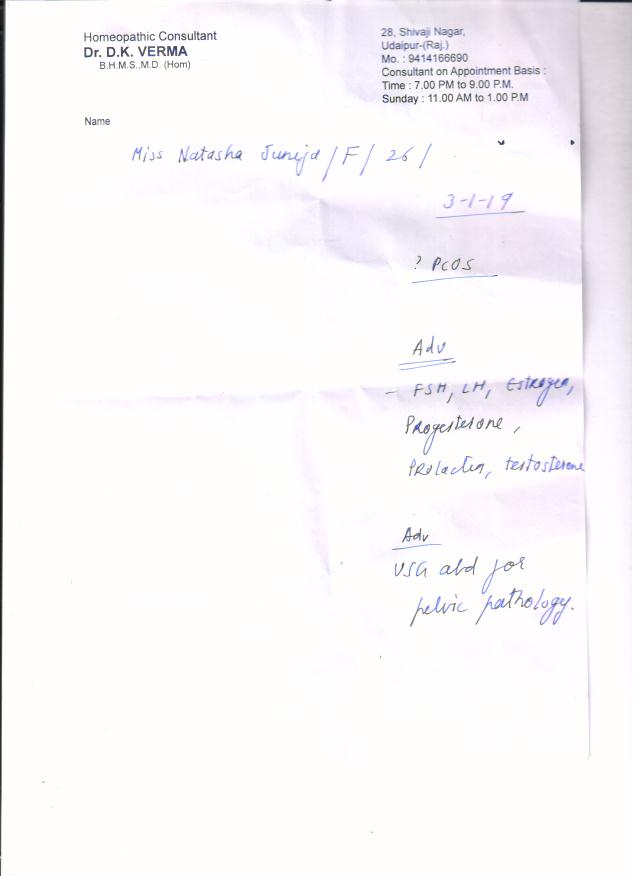 Homeopathic Consultant
Dr. D.K. VERMA
B.H.M.S.,M.D. (Hom)
28, Shivaji Nagar,
Udaipur-(Raj.)
Mo. : 9414166690
Consultant on Appointment Basis :
Time : 7.00 PM to 9.00 P.M.
Sunday : 11.00 AM to 1.00 P.M
Name
Miss Natasha Juneja / F / 26 /
3-1-19
? PCOS
Adv
- FSH, LH, Estrogen,
Progesterone,
Prolactin, testosterone
Adv
USG abd for
pelvic pathology.